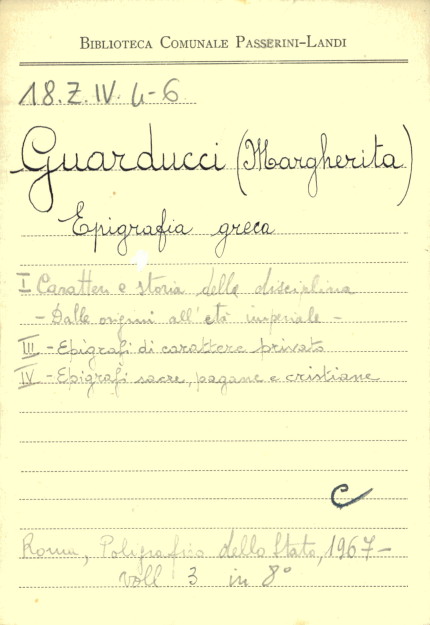 BIBLIOTECA COMUNALE PASSERINI-LANDI
18.Z.IV. 4-6
Guarducci (Margherita)
Epigrafia greca
I Caratteri e storia della disciplina
- Dalle origini all'età imperiale -
III - Epigrafi di carattere privato
IV - Epigrafi sacre, pagane e cristiane
C
Roma, Poligrafico dello Stato, 1967 -
voll 3 in 8°